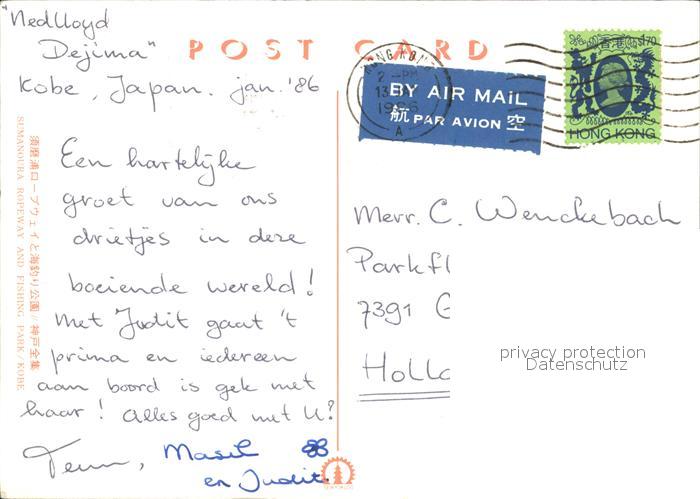 "Nedlloyd
Dejima"
Kobe, Japan. jan. '86
POST CARD
Een hartelijke
groet van ons
drietjes in deze
boeiende wereld!
Met Judit gaat 't
prima en iedereen
aan boord is gek met
haar! Alles goed met U?
en Judit.
須磨浦ロープウェイと海釣り公園//神戸全集
SUMANOURA ROPEWAY AND FISHING PARK/KOBE
HONG KONG
2 - PM
13
1986
A
BY AIR MAIL
航 PAR AVION 空
香港 $1.70
HONG KONG
Mevr. C. Wenckebach
Parkfl
7391 G
Holla
privacy protection
Datenschutz